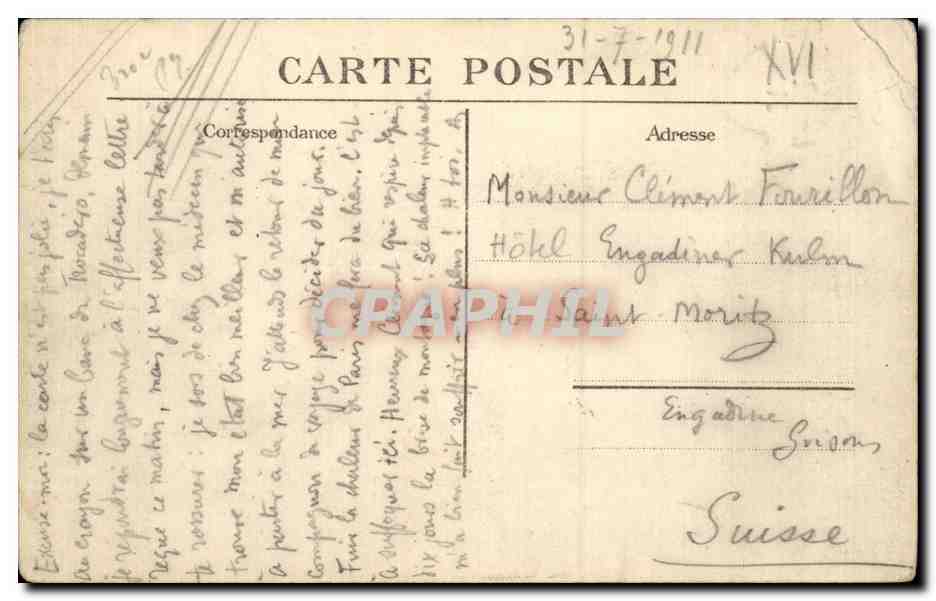 31-7-1911
XVI
CARTE POSTALE
Correspondance
Adresse
Monsieur Clément Fourillon
Hôtel Engadiner Kulm
à Saint Moritz
Engadine
Grisons
Suisse
Excuse-moi : la carte n'est pas jolie, je t'écris
au crayon sur un banc du Trocadéro. Demain
je répondrai longuement à l'affectueuse lettre
reçue ce matin, mais je ne veux pas tarder à
te rassurer : je sors de chez le médecin qui
trouve mon état bien meilleur et m'autorise
à partir à la mer. J'attends le retour de mon
compagnon de voyage pour décider du jour.
Fuir la chaleur de Paris me fera du bien. C'est
à suffoquer ici. Heureux Clément qui respire depuis
dix jours la brise de montagne ! La chaleur implacable
m'a bien fait souffrir en plus ! A toi.
CPAPHIL